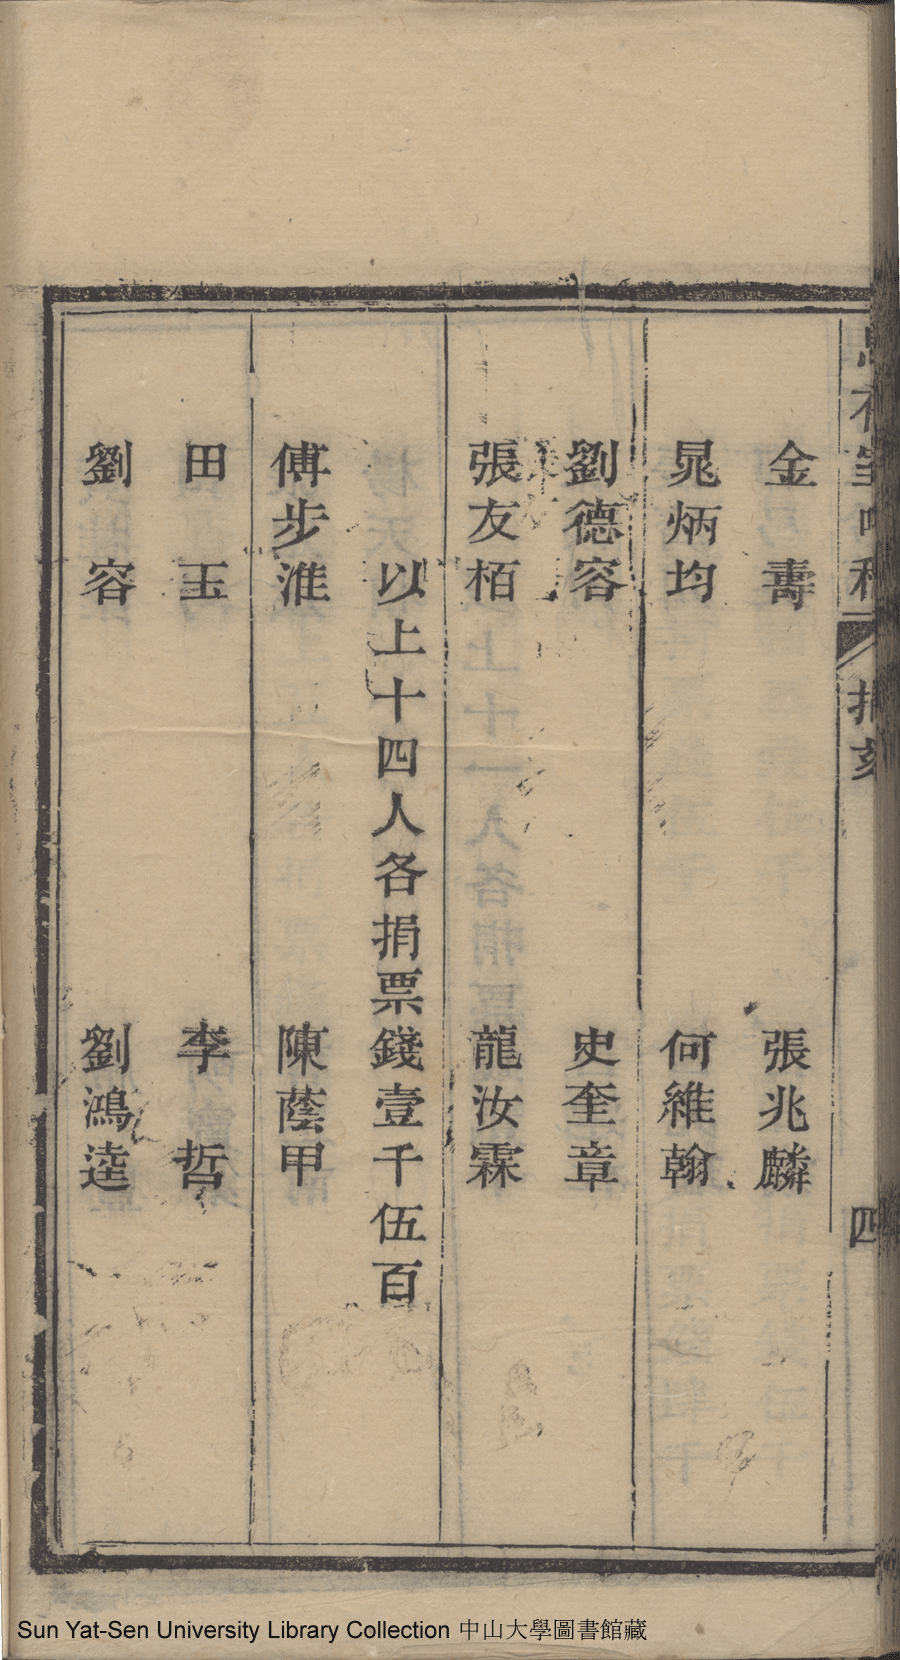 捐刻
四
金壽　張兆麟
晁炳均　何維翰
劉德容　史奎章
張友栢　龍汝霖
以上十四人各捐票錢壹千伍百
傅步淮　陳蔭甲
田玉　李哲
劉容　劉鴻逵
Sun Yat-Sen University Library Collection 中山大學圖書館藏